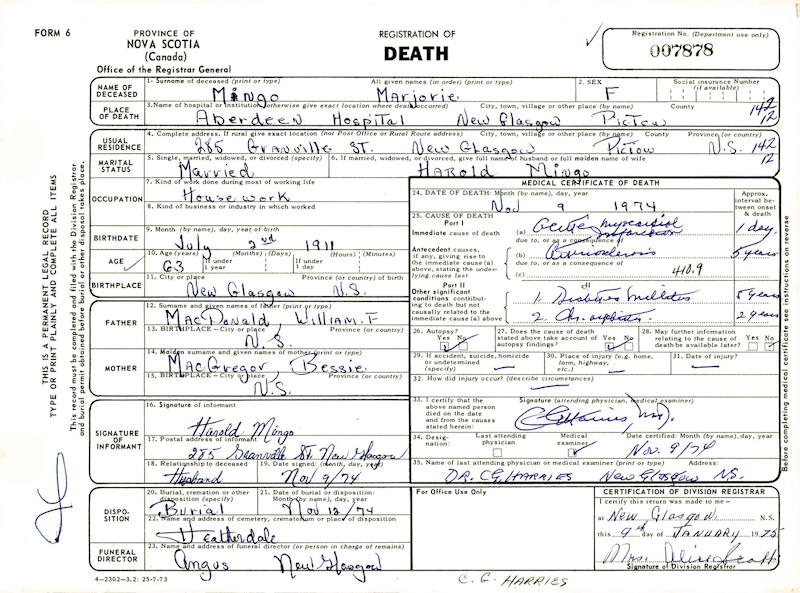 FORM 6
PROVINCE OF
NOVA SCOTIA
(Canada)
Office of the Registrar General
REGISTRATION OF
DEATH
Registration No. (Department use only)
007878
NAME OF DECEASED
1. Surname of deceased (print or type) All given names (in order) (print or type) 2. SEX Social insurance Number (if available)
Mingo Marjorie F
PLACE OF DEATH
3. Name of hospital or institution otherwise give exact location where death occurred) City, town, village or other place (by name) County
Aberdeen Hospital New Glasgow Pictou 142 12
USUAL RESIDENCE
4. Complete address. If rural give exact location (not Post Office or Rural Route address) City, town, village or other place (by name) County Province (or country)
285 Granville St. New Glasgow Pictou N.S. 142 12
MARITAL STATUS
5. Single, married, widowed, or divorced (specify) 6. If married, widowed, or divorced, give full name of husband or full maiden name of wife
Married Harold Mingo
OCCUPATION
7. Kind of work done during most of working life
Housework
8. Kind of business or industry in which worked
BIRTHDATE
9. Month (by name), day, year of birth
July 2nd 1911
AGE
10. Age (years) (Months) (Days) (Hours) (Minutes)
63 If under 1 year If under 1 day
BIRTHPLACE
11. City or place Province (or country) of birth
New Glasgow N.S.
FATHER
12. Surname and given names of father (print or type)
MacDonald William. F
13. BIRTHPLACE - City or place Province (or country)
N.S.
MOTHER
14. Maiden surname and given names of mother (print or type)
MacGregor Bessie
15. BIRTHPLACE - City or place Province (or country)
N.S.
SIGNATURE OF INFORMANT
16. Signature of informant
Harold Mingo
17. Postal address of informant
285 Granville St. New Glasgow
18. Relationship to deceased 19. Date signed: (month, day, year)
Husband Nov 9/74
DISPOSITION
20. Burial, cremation or other disposition (specify) 21. Date of burial or disposition: Month (by name), day, year
Burial Nov 12/74
22. Name and address of cemetery, crematorium or place of disposition
Heatherdale
FUNERAL DIRECTOR
23. Name and address of funeral director (or person in charge of remains)
Angus New Glasgow
4-2302-3,2: 25-7-73
MEDICAL CERTIFICATE OF DEATH
24. DATE OF DEATH: Month (by name), day, year
Nov 9 1974
Approx. interval between onset & death
25. CAUSE OF DEATH
Part I
Immediate cause of death
(a) Acute myocardial infarction 1 day.
due to, or as a consequence of
Antecedent causes, if any, giving rise to the immediate cause (a) above, stating the underlying cause last
(b) 5 years
due to, or as a consequence of
(c) 410.9
Part II
Other significant conditions contributing to death but not causally related to the immediate cause (a) above
1. Diabetes mellitus 5 years
2. Chr. 2 years
26. Autopsy? Yes No
27. Does the cause of death stated above take account of autopsy findings? Yes No
28. May further information relating to the cause of death be available later? Yes No
29. If accident, suicide, homicide or undetermined (specify)
30. Place of injury (e.g. home, farm, highway, etc.)
31. Date of injury?
32. How did injury occur? (describe circumstances)
33. I certify that the above named person died on the date and from the causes stated herein:
Signature (attending physician, medical examiner)
CG Harries MD.
34. Designation: Last attending physician Medical examiner Date certified: Month (by name), day, year
Nov. 9/74
35. Name of last attending physician or medical examiner (print or type) Address:
DR. CG. HARRIES NEW GLASGOW NS.
For Office Use Only
CERTIFICATION OF DIVISION REGISTRAR
I certify this return was made to me -
at New Glasgow N.S.
this 9th day of JANUARY 1975
Mrs. Alice Scott
Signature of Division Registrar
C. G. HARRIES
THIS IS A PERMANENT LEGAL RECORD.
TYPE OR PRINT PLAINLY AND COMPLETE ALL ITEMS
This record must be completed and filed with the Division Registrar and burial permit obtained before burial or other disposal takes place.
Before completing medical certificate see instructions on reverse